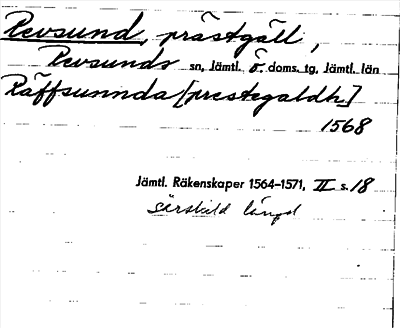 Revsund, prästgäll,
Revsunds sn, Jämtl. ö. doms. tg, Jämtl. län
Räffsunnda [prestegaldh]
1568
Jämtl. Räkenskaper 1564–1571, II s. 18
särskild längd